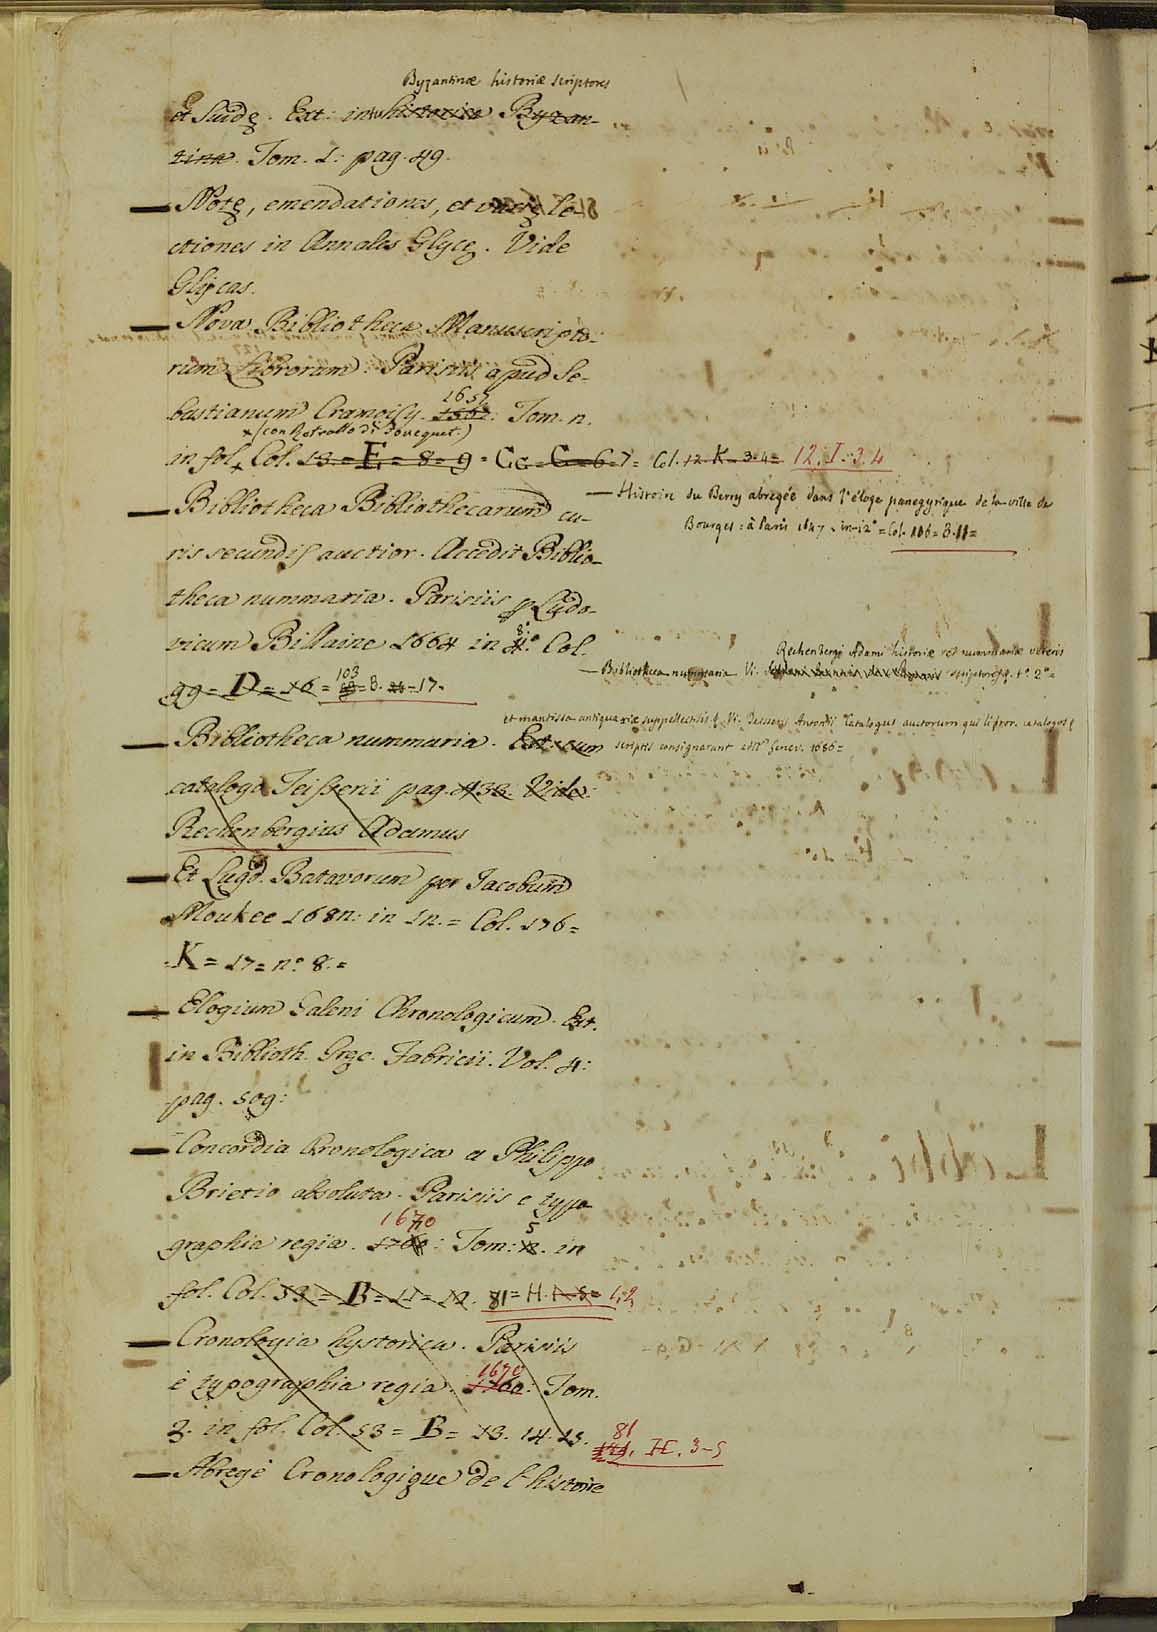 Byzantinæ historiæ scriptores
et Suidę. Ext: inter historiæ Byzan-
tinæ. Tom. 1: pag. 49.
— Notę, emendationes, et varię le-
ctiones in Annales Glycę. Vide
Glÿcas.
— Nova Bibliotheca Manuscripto-
rum Librorum. Parisiis apud Se-
bastianum Cramoisy. 1657 Tom. 2.
x (con Ritratto di Foucquet.)
in fol. Col. 13. = E = 8 = 9 = Cc = C = 6 = 7 = Col. 12. K = 3.4 = 12. I. 3. 4
— Histoire du Berry abregée dans l'éloge panegyrique de la ville de
Bourges = à Paris 1647. in-12° = Col. 106 = 3.11 =
— Bibliotheca Bibliothecarum cu-
ris secundis auctior. Accedit Biblio-
theca nummaria. Parisiis p Ludo-
vicum Billaine 1664 in 8.° Col.
99 = D = 16 = 103 = 8. = 17.
Rechenbergi Adami historiæ rei nummariæ veteris
— Bibliotheca nummaria Vi. scriptores q. t.° 2.° =
et mantissa antiquariæ suppellectilis q. Vi. Teisserii Antonii Catalogus auctorum qui libror. catalogos q
scriptis consignarunt etc. Genev. 1686 =
— Bibliotheca nummaria. Ext. cum
catalogo Teisserii pag. 436 Vide
Rechenbergius Adamus
— Et Lugd. Batavorum per Jacobum
Moukee 1682: in 12. = Col. 176 =
K = 17 = n.° 8. =
— Elogium Galeni Chronologicum. Ext.
in Biblioth. Gręc. Fabricii. Vol. 4:
pag. 509:
— Concordia Cronologica a Philippo
Brietio absoluta. Parisiis e typo-
1670
graphia regia. : Tom: 5. in
fol. Col. 53 = B = 11 = 12. 81 = H. 1.2
— Cronologia hystorica. Parisiis
è typographia regia. 1670: Tom.
3. in fol. Col. 53 = B = 13. 14. 15. 81 H. 3-5
— Abregé Cronologique de l'histoire